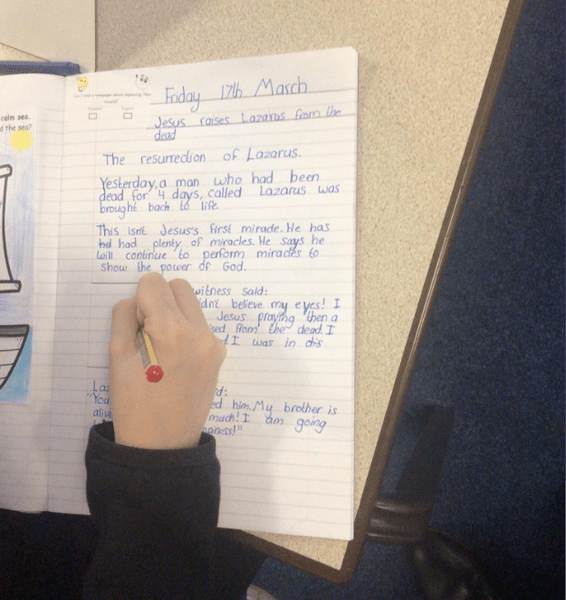 calm sea.
d the sea?
Friday 17th March
Jesus raises Lazarus from the
dead
The resurrection of Lazarus.
Yesterday, a man who had been
dead for 4 days, called Lazarus was
brought back to life.
This isn't Jesus's first miracle. He has
had plenty of miracles. He says he
will continue to perform miracles to
show the power of God.
witness said:
ldn't believe my eyes! I
Jesus praying then a
sed from the dead. I
d I was in dis
Laz d:
"You ed him. My brother is
alive much! I am going
ppiness!"